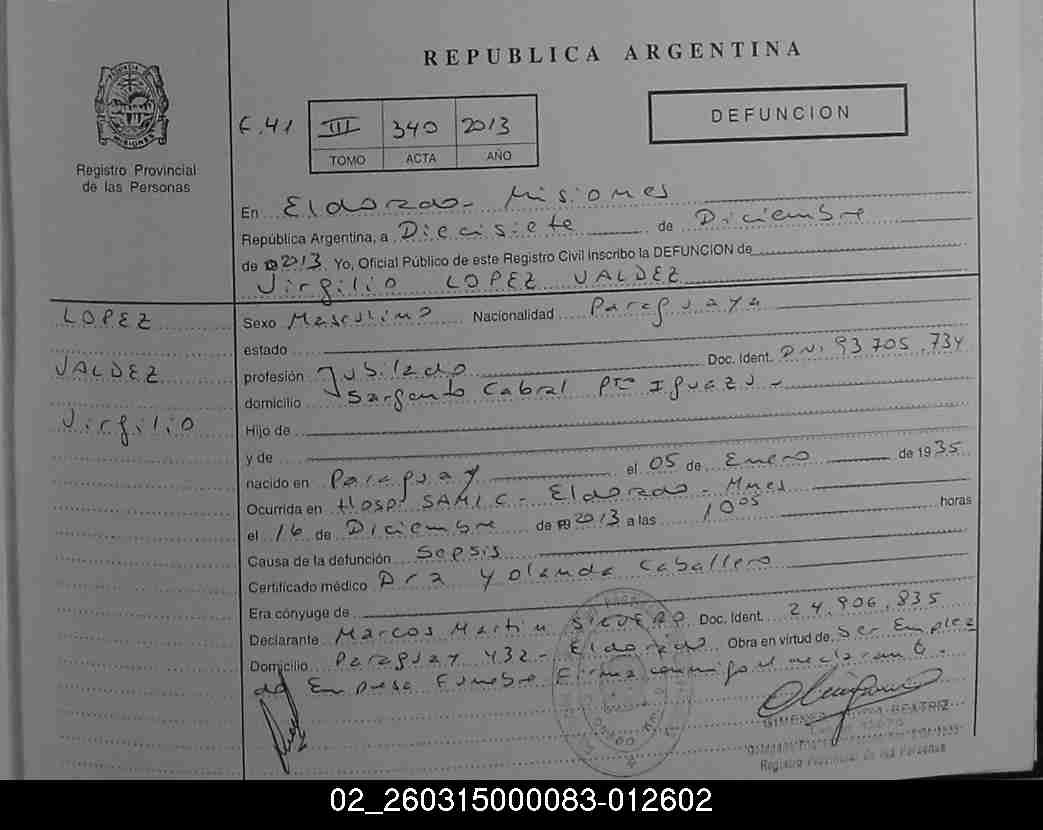 REPUBLICA ARGENTINA
MISIONES
Registro Provincial
de las Personas
F.41 III 340 2013
TOMO ACTA AÑO
DEFUNCION
En Eldorado - Misiones
República Argentina, a Diecisiete de Diciembre
de 2013. Yo, Oficial Público de este Registro Civil Inscribo la DEFUNCION de
Virgilio LOPEZ VALDEZ
LOPEZ
VALDEZ
Virgilio
Sexo Masculino Nacionalidad Paraguaya
estado
profesión Jubilado Doc. Ident. DNI 93 705.734
domicilio Sargento Cabral Pto Iguazu -
Hijo de
y de
nacido en Paraguay el 05 de Enero de 1935
Ocurrida en Hosp. SAMIC - Eldorado - Mnes
el 16 de Diciembre de 2013 a las 10 05 horas
Causa de la defunción Sepsis
Certificado médico Dra Yolanda Caballero
Era cónyuge de
Declarante Marcos Martin Doc. Ident. 24.906.835
Domicilio Paraguay 432 - Eldorado Obra en virtud de Ser Emplea
do Empresa Funebre Firma conmigo el declarante.
BEATRIZ
Registro Provincial de las Personas
02_260315000083-012602